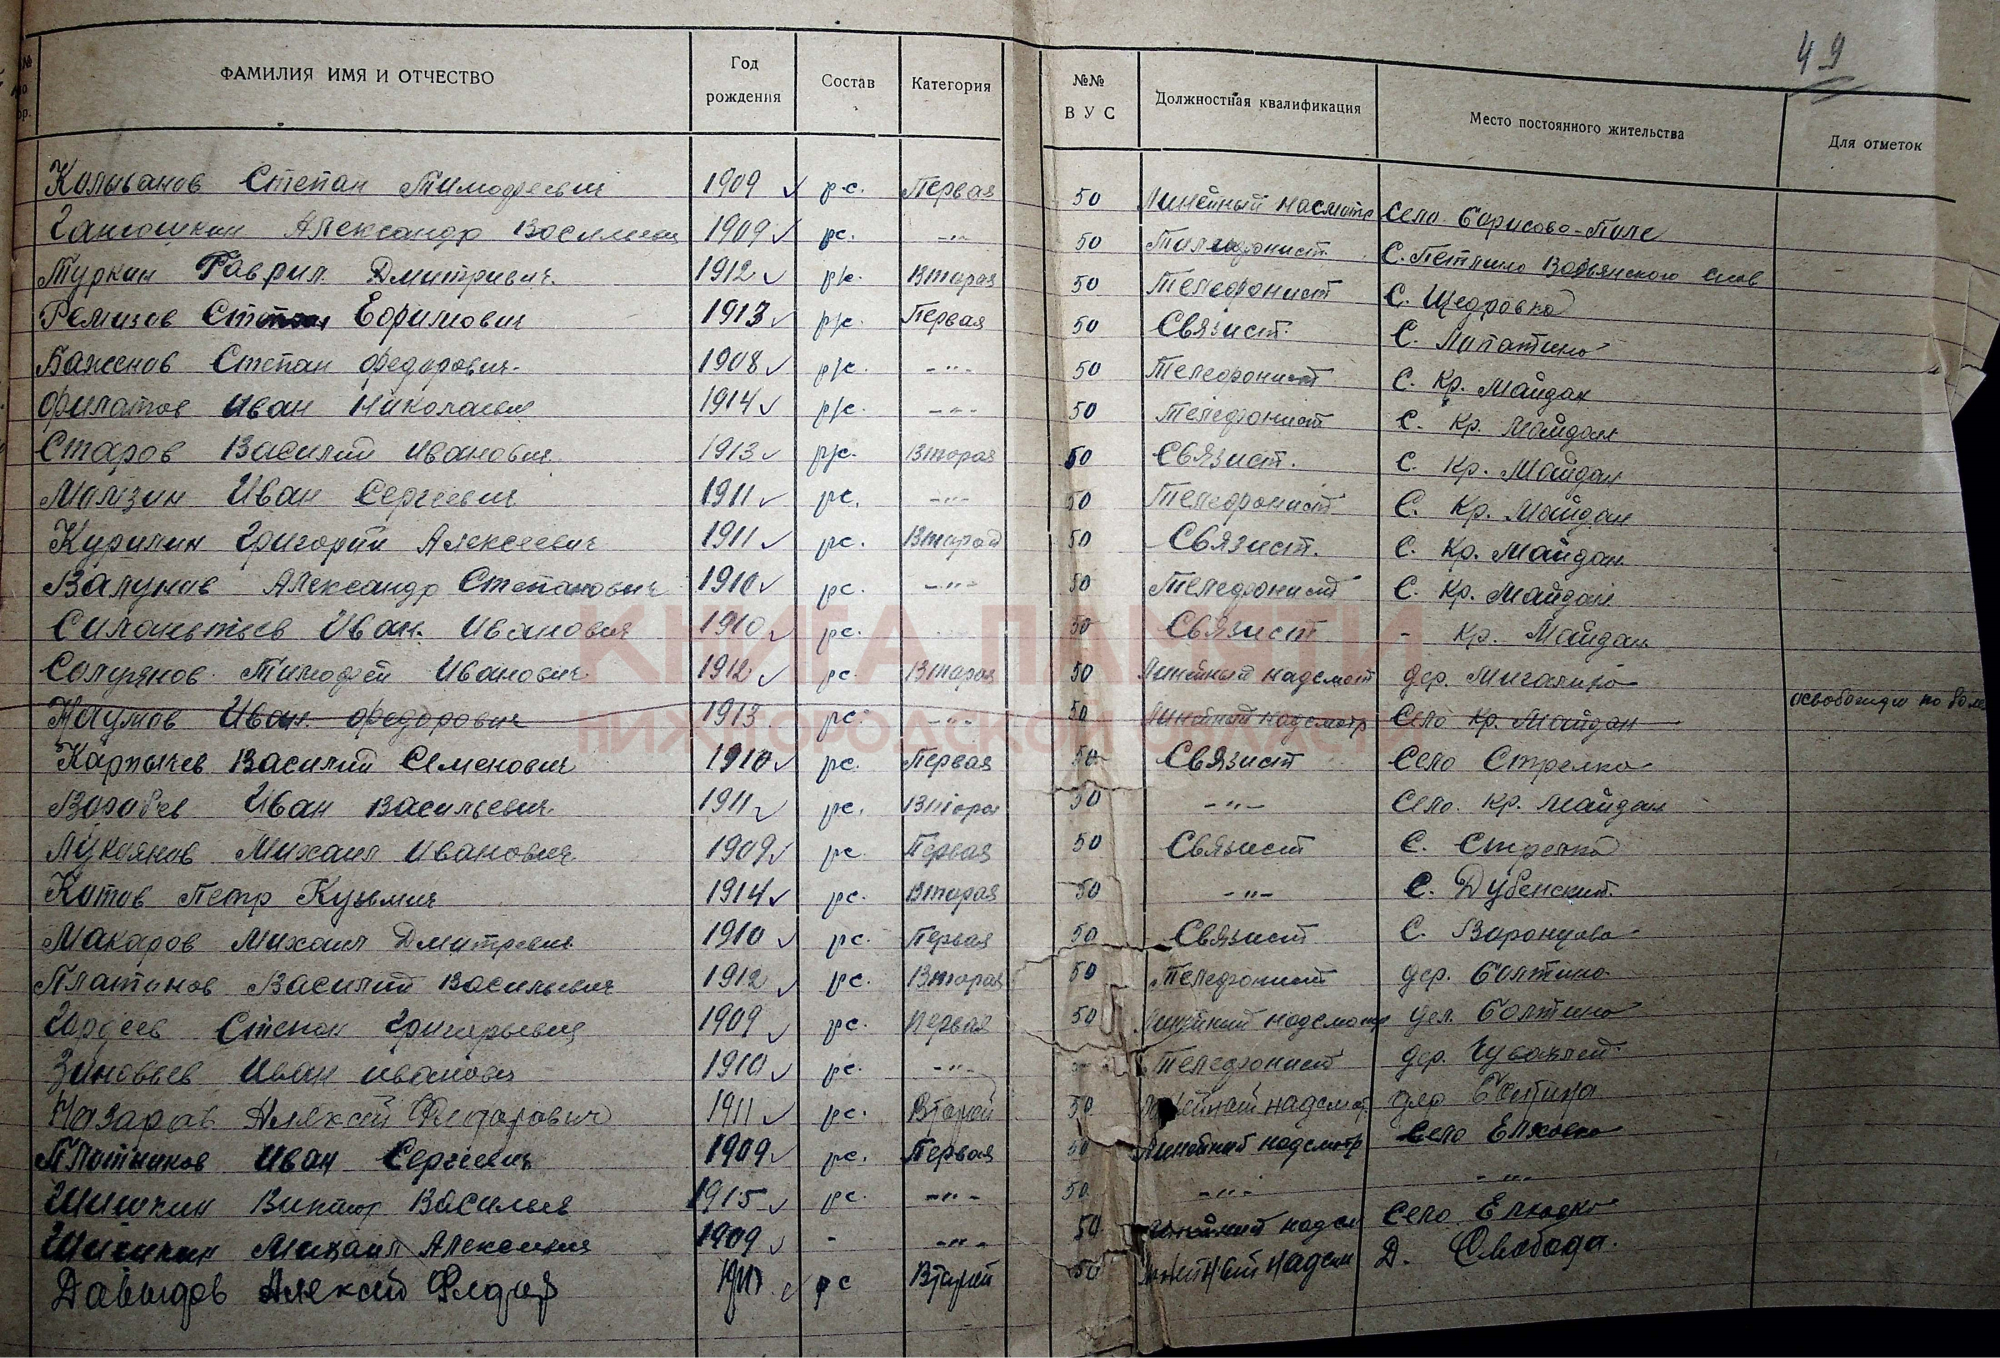 49
№№ по пор. ФАМИЛИЯ ИМЯ И ОТЧЕСТВО Год рождения Состав Категория №№ ВУС Должностная квалификация Место постоянного жительства Для отметок
Колыванов Степан Тимофеевич 1909 р.с. Первая 50 Линейный насмотр Село Борисово-Поле
Александр Васильевич 1909 рс. -"- 50 Телефонист С. Петлино
Туркин Гаврил Дмитриевич 1912 р/с. Вторая 50 Телефонист С. Щедровка
Ремизов Степан Ефимович 1913 р/с. Первая 50 Связист. С. Лопатино
Баженов Степан Федорович 1908 р/с. -"- 50 Телефонист С. Кр. Майдан
Филатов Иван Николаевич 1914 р/с. -"- 50 Телефонист С. Кр. Майдан
Старов Василий Иванович 1913 р/с. Вторая 50 Связист. С. Кр. Майдан
Иван Сергеевич 1911 рс. -"- 50 Телефонист С. Кр. Майдан
Курилин Григорий Алексеевич 1911 рс. Второй 50 Связист. С. Кр. Майдан
Валунов Александр Степанович 1910 рс. -"- 50 Телефонист С. Кр. Майдан
Силантьев Иван Иванович 1910 рс. 50 Связист - Кр. Майдан
Солуянов Тимофей Иванович 1912 рс. Вторая 50 Линейный надсмот дер. Мигалиха
Наумов Иван Федорович 1913 рс. -"- 50 Линейный надсмотр Село Кр. Майдан освобожден по боле
Карпычев Василий Семенович 1910 рс. Первая 50 Связист Село Стрелка
Воробьев Иван Васильевич 1911 рс. Вторая 50 -"- Село Кр. Майдан
Лукоянов Михаил Иванович 1909 рс. Первая 50 Связист С. Стрелка
Котов Петр Кузьмич 1914 рс. Вторая 50 -"- С. Дубенский
Макаров Михаил Дмитревич 1910 рс. Первая 50 Связист С.
Платонов Василий Васильевич 1912 рс. Вторая 50 Телефонист дер. Болтино
Гордеев Степан Григорьевич 1909 рс. Первая 50 Линейний надсмотр дер. Болтино
Зиновьев Иван Иванович 1910 рс. -"- Телефонист дер.
Назаров Алексей Федорович 1911 рс. Второй 50 Линейный надсмот дер
Плотников Иван Сергеевич 1909 рс. Первая 50 Линейний надсмотр Село Елховка
Шишкин Виктор Васильев 1915 рс. -"- 50 -"- -"-
Шишкин Михаил Алексеевич 1909 - -"- 50 Линейний надсм Село Елховка
Давыдов Алексей Федор рс Второй 50 Линейный надсм Д. Слобода.
КНИГА ПАМЯТИ
НИЖЕГОРОДСКОЙ ОБЛАСТИ